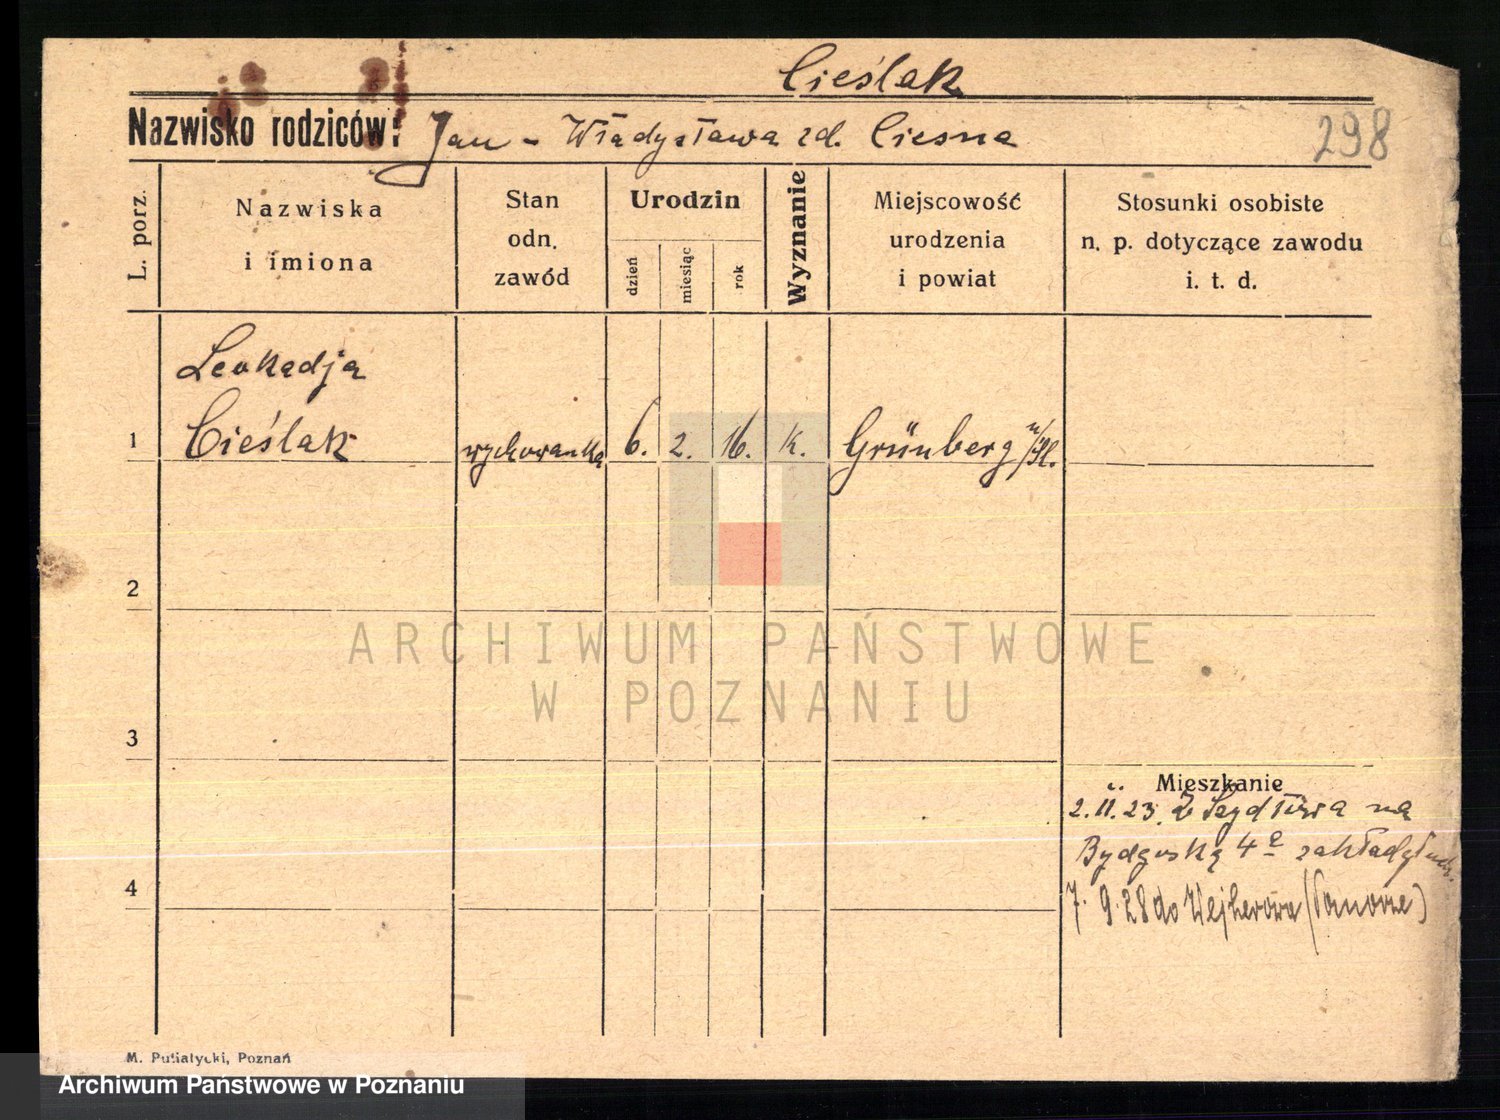 Cieślak
Nazwisko rodziców: Jan - Władysława zd. Ciesna
298
L. porz.
Nazwiska
i imiona
Stan
odn.
zawód
Urodzin
dzień
miesiąc
rok
Wyznanie
Miejscowość
urodzenia
i powiat
Stosunki osobiste
n. p. dotyczące zawodu
i. t. d.
Leokadja
1 Cieślak wychowanka 6. 2. 16. k. Grünberg
2
ARCHIWUM PAŃSTWOWE
W POZNANIU
3
Mieszkanie
2. II. 23. z na
Bydgoską 4a
4
7. 9. 28 do Wejherowa (Pomorze)
M. Putiatycki, Poznań
Archiwum Państwowe w Poznaniu